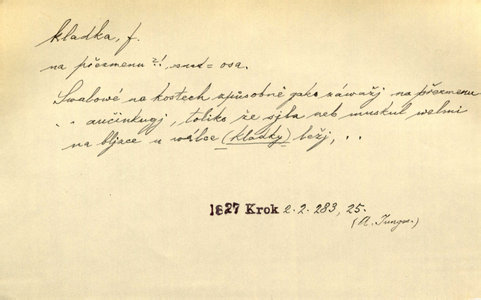 kladka, f.
na přezmenu?! snad = osa.
Swalowé na kostech způsobně gako záwažj na přezmenu
.. aučinkugj, toliko že syla neb muskul welmi
na bljzce u wálce (kladky) běžj, ..
1827 Krok 2.2.283, 25.
(A. Jungm.)